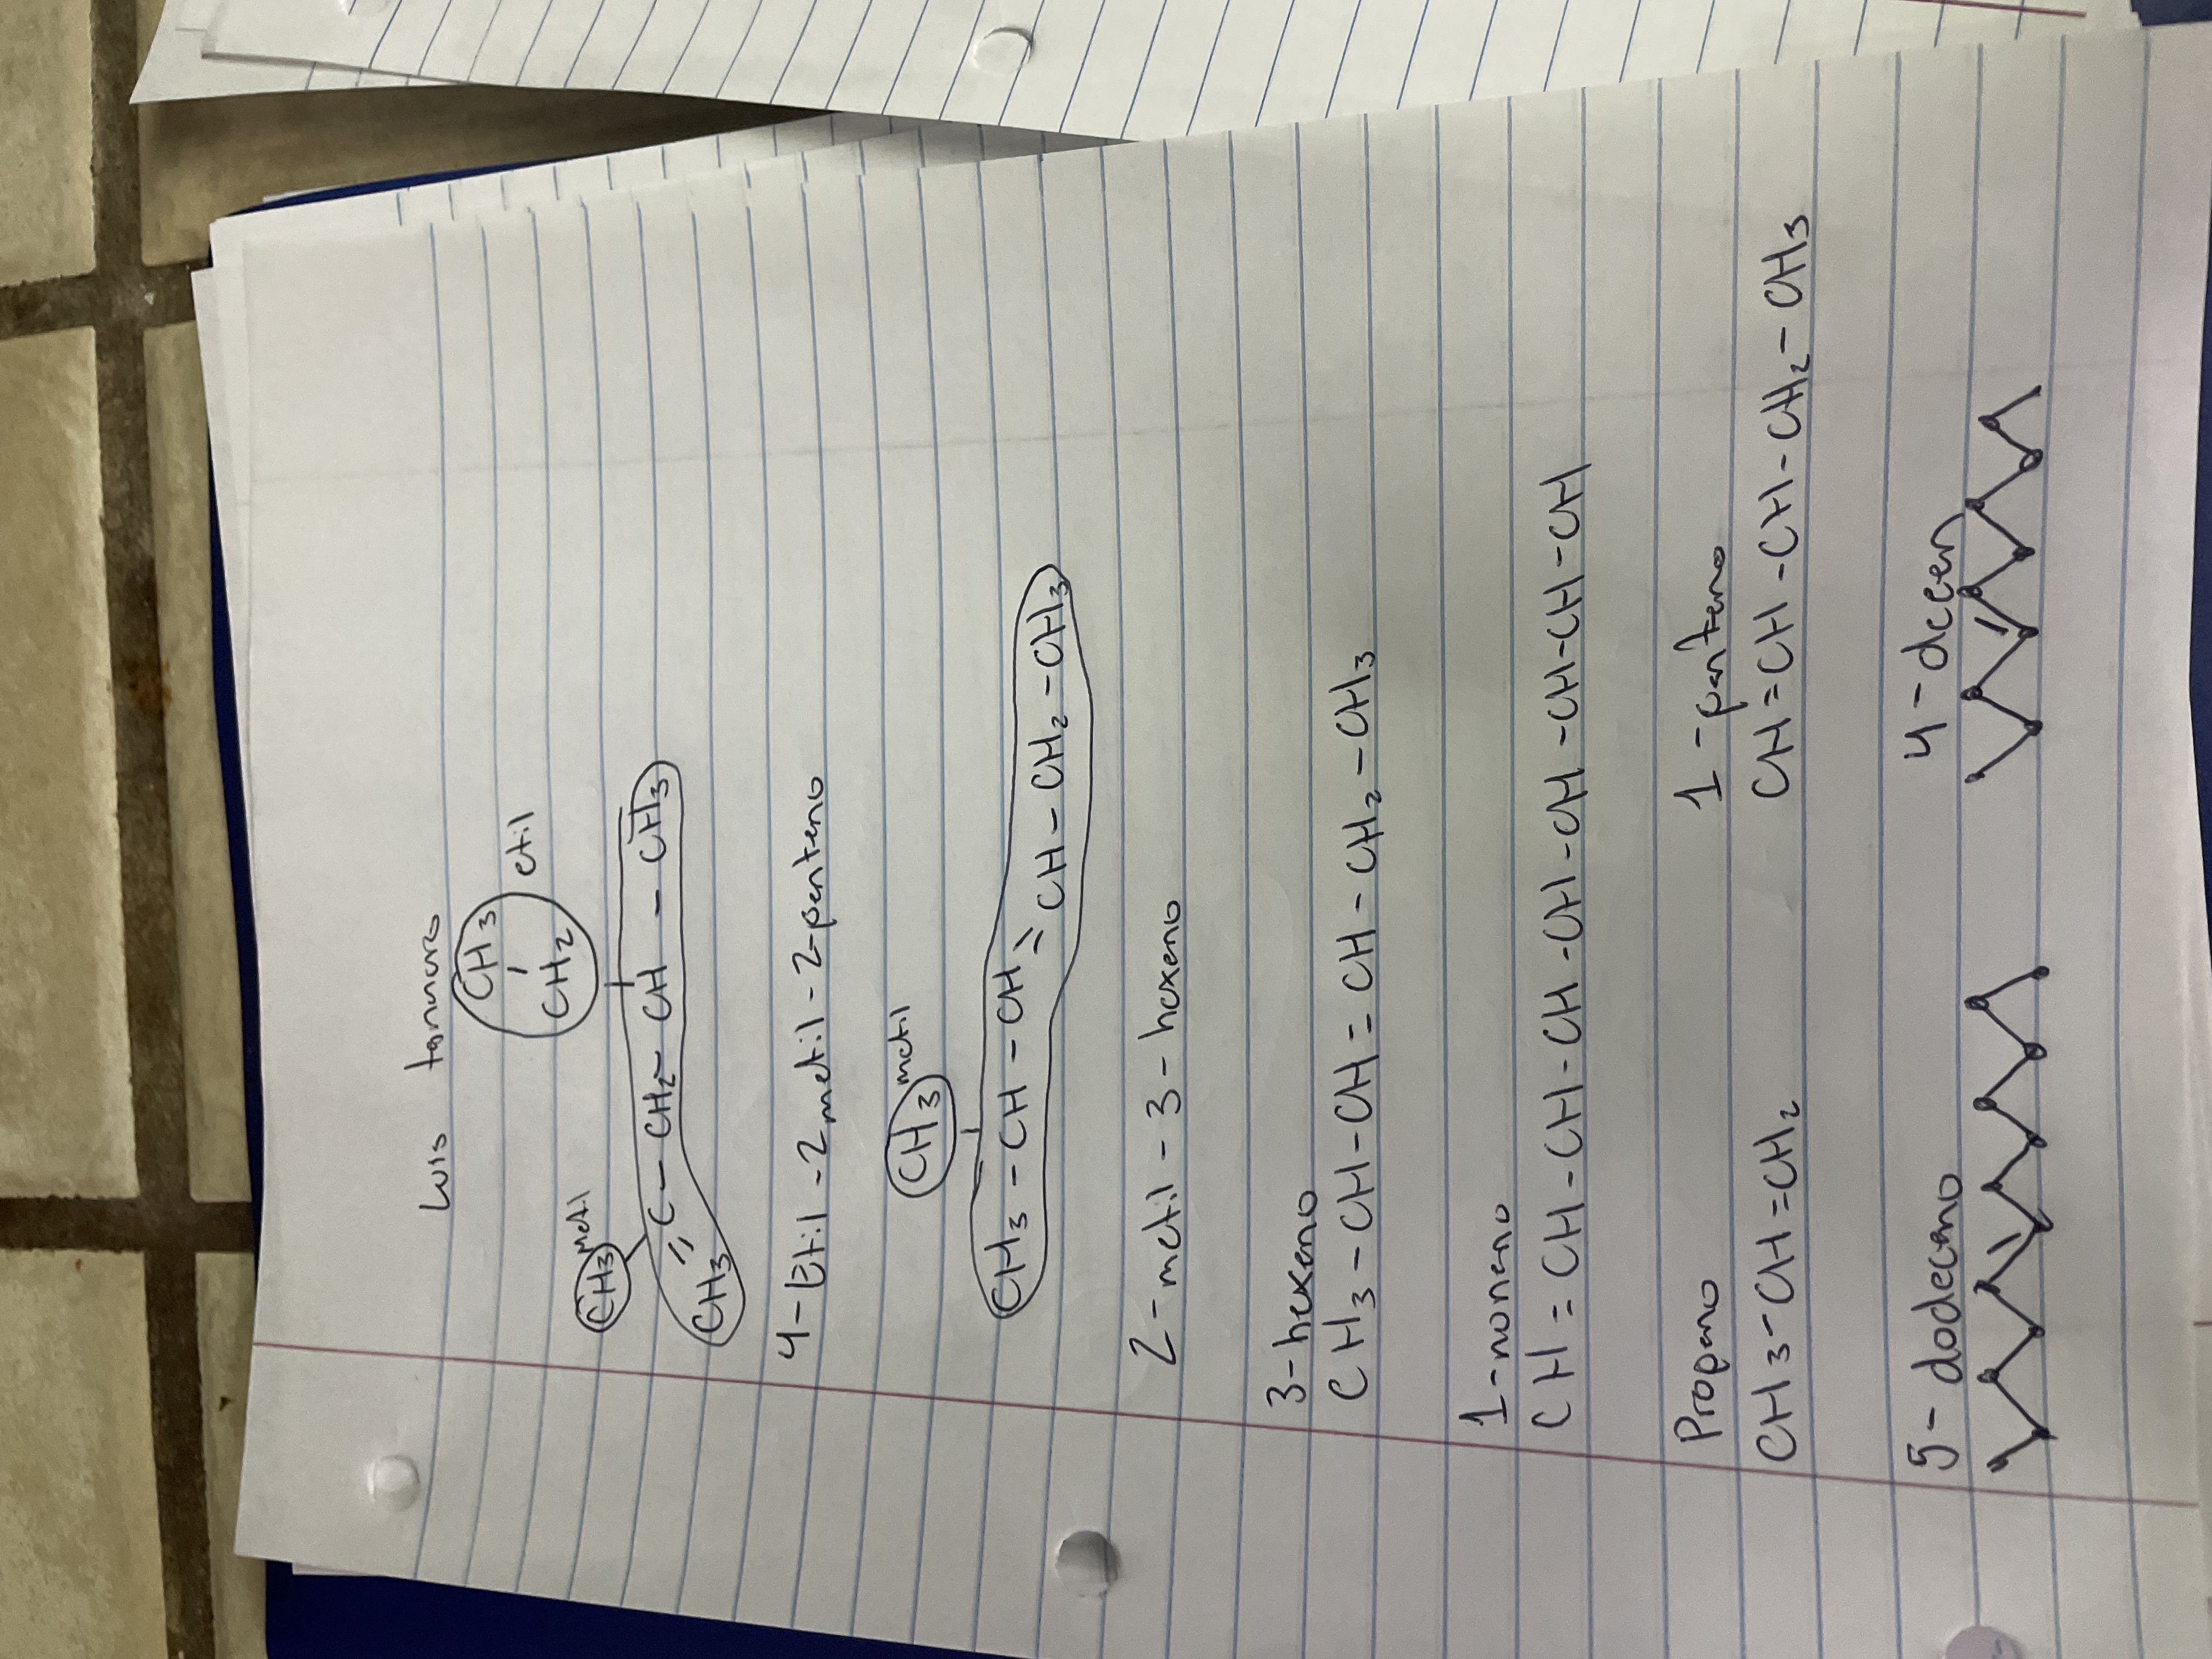 Luis tannuro
CH3
CH2 etil
CH3 metil
CH3 = C - CH2 - CH - CH3
4-Etil-2metil-2-penteno
CH3 metil
CH3 - CH - CH = CH - CH2 - CH3
2-metil-3-hexeno
3-hexeno
CH3-CH-CH=CH-CH2-CH3
1-noneno
CH=CH-CH-CH-CH-CH-CH-CH-CH-CH
Propeno 1-penteno
CH3-CH=CH2 CH=CH-CH-CH2-CH3
5-dodeceno 4-decen